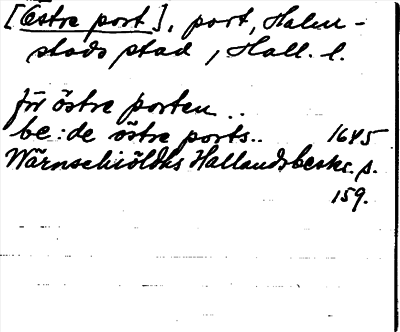 [Östre port], port, Halm-
stads stad, Hall. l.
för östre porten..
be:de östre ports.. 1645
Wärnschiöldhs Hallandsbeskr. s.
159.